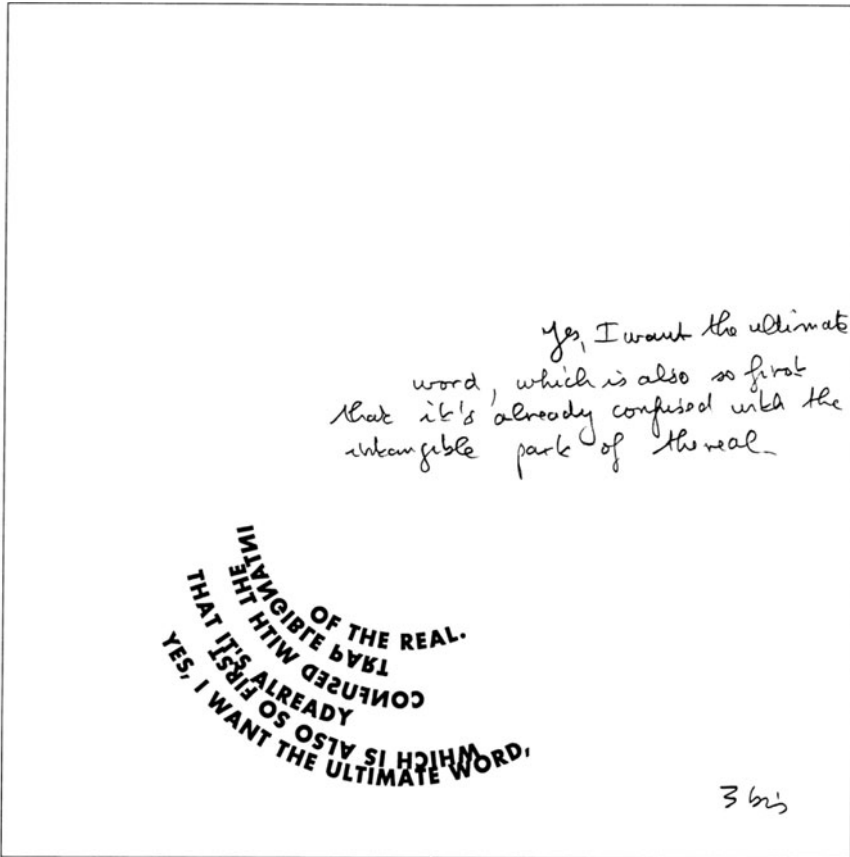 Yes, I want the ultimate
word, which is also so first
that it's already confused with the
intangible part of the real.
YES, I WANT THE ULTIMATE WORD,
WHICH IS ALSO SO FIRST
THAT IT'S ALREADY
CONFUSED WITH THE
INTANGIBLE PART
OF THE REAL.
3 bis